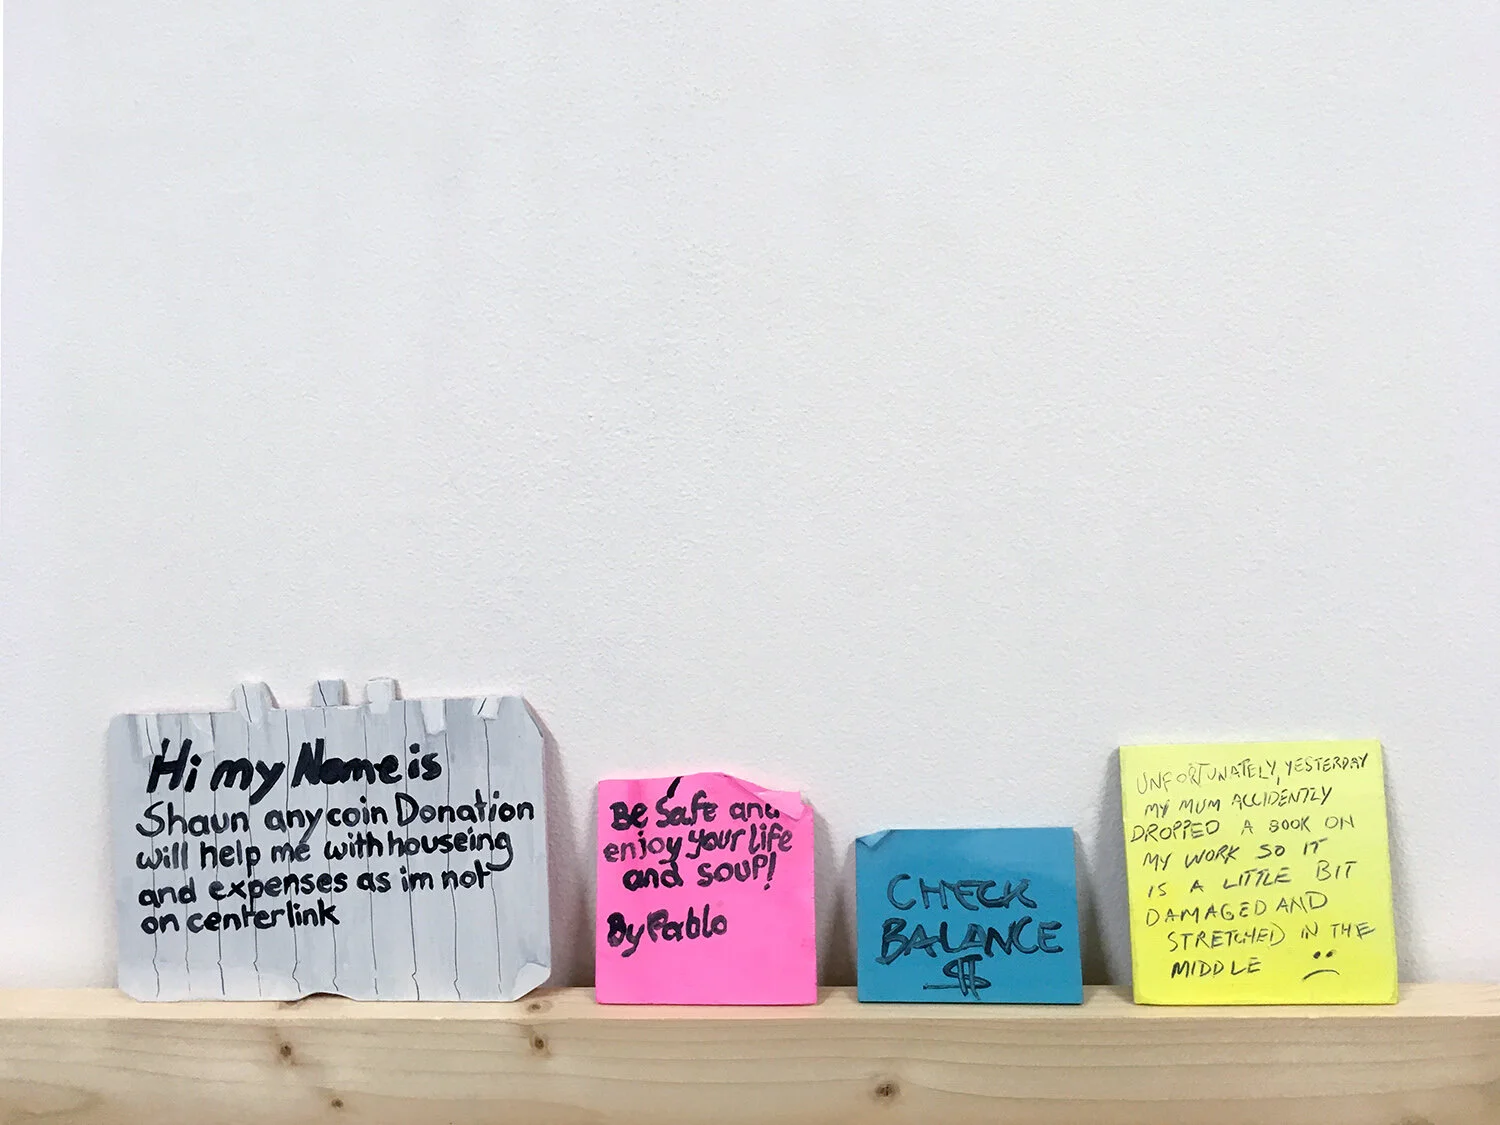 Hi my Name is
Shaun any coin Donation
will help me with houseing
and expenses as im not
on centerlink
Be Safe and
enjoy your life
and soup!
By Pablo
CHECK
BALANCE
$
UNFORTUNATELY, YESTERDAY
MY MUM ACCIDENTLY
DROPPED A BOOK ON
MY WORK SO IT
IS A LITTLE BIT
DAMAGED AND
STRETCHED IN THE
MIDDLE